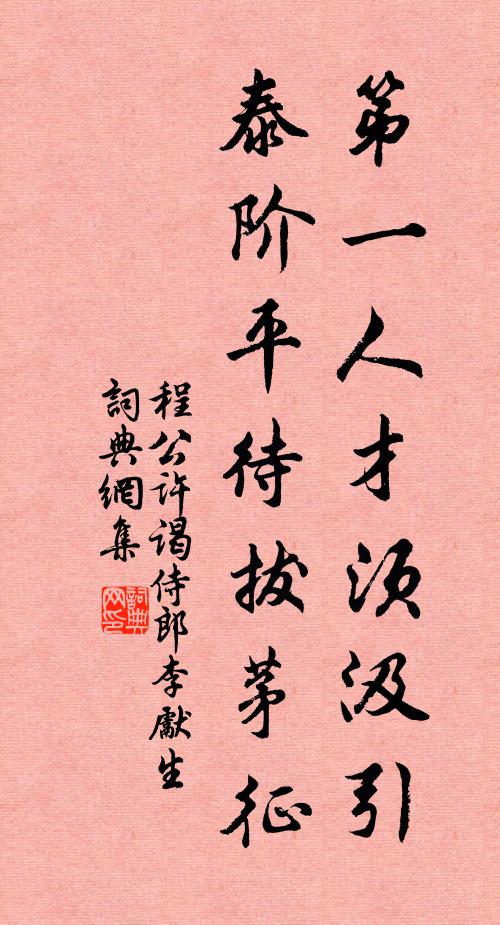 第一人才须汲引
泰阶平待拔茅征
程公许谒侍郎李獻生
詞典網集
詞典网印